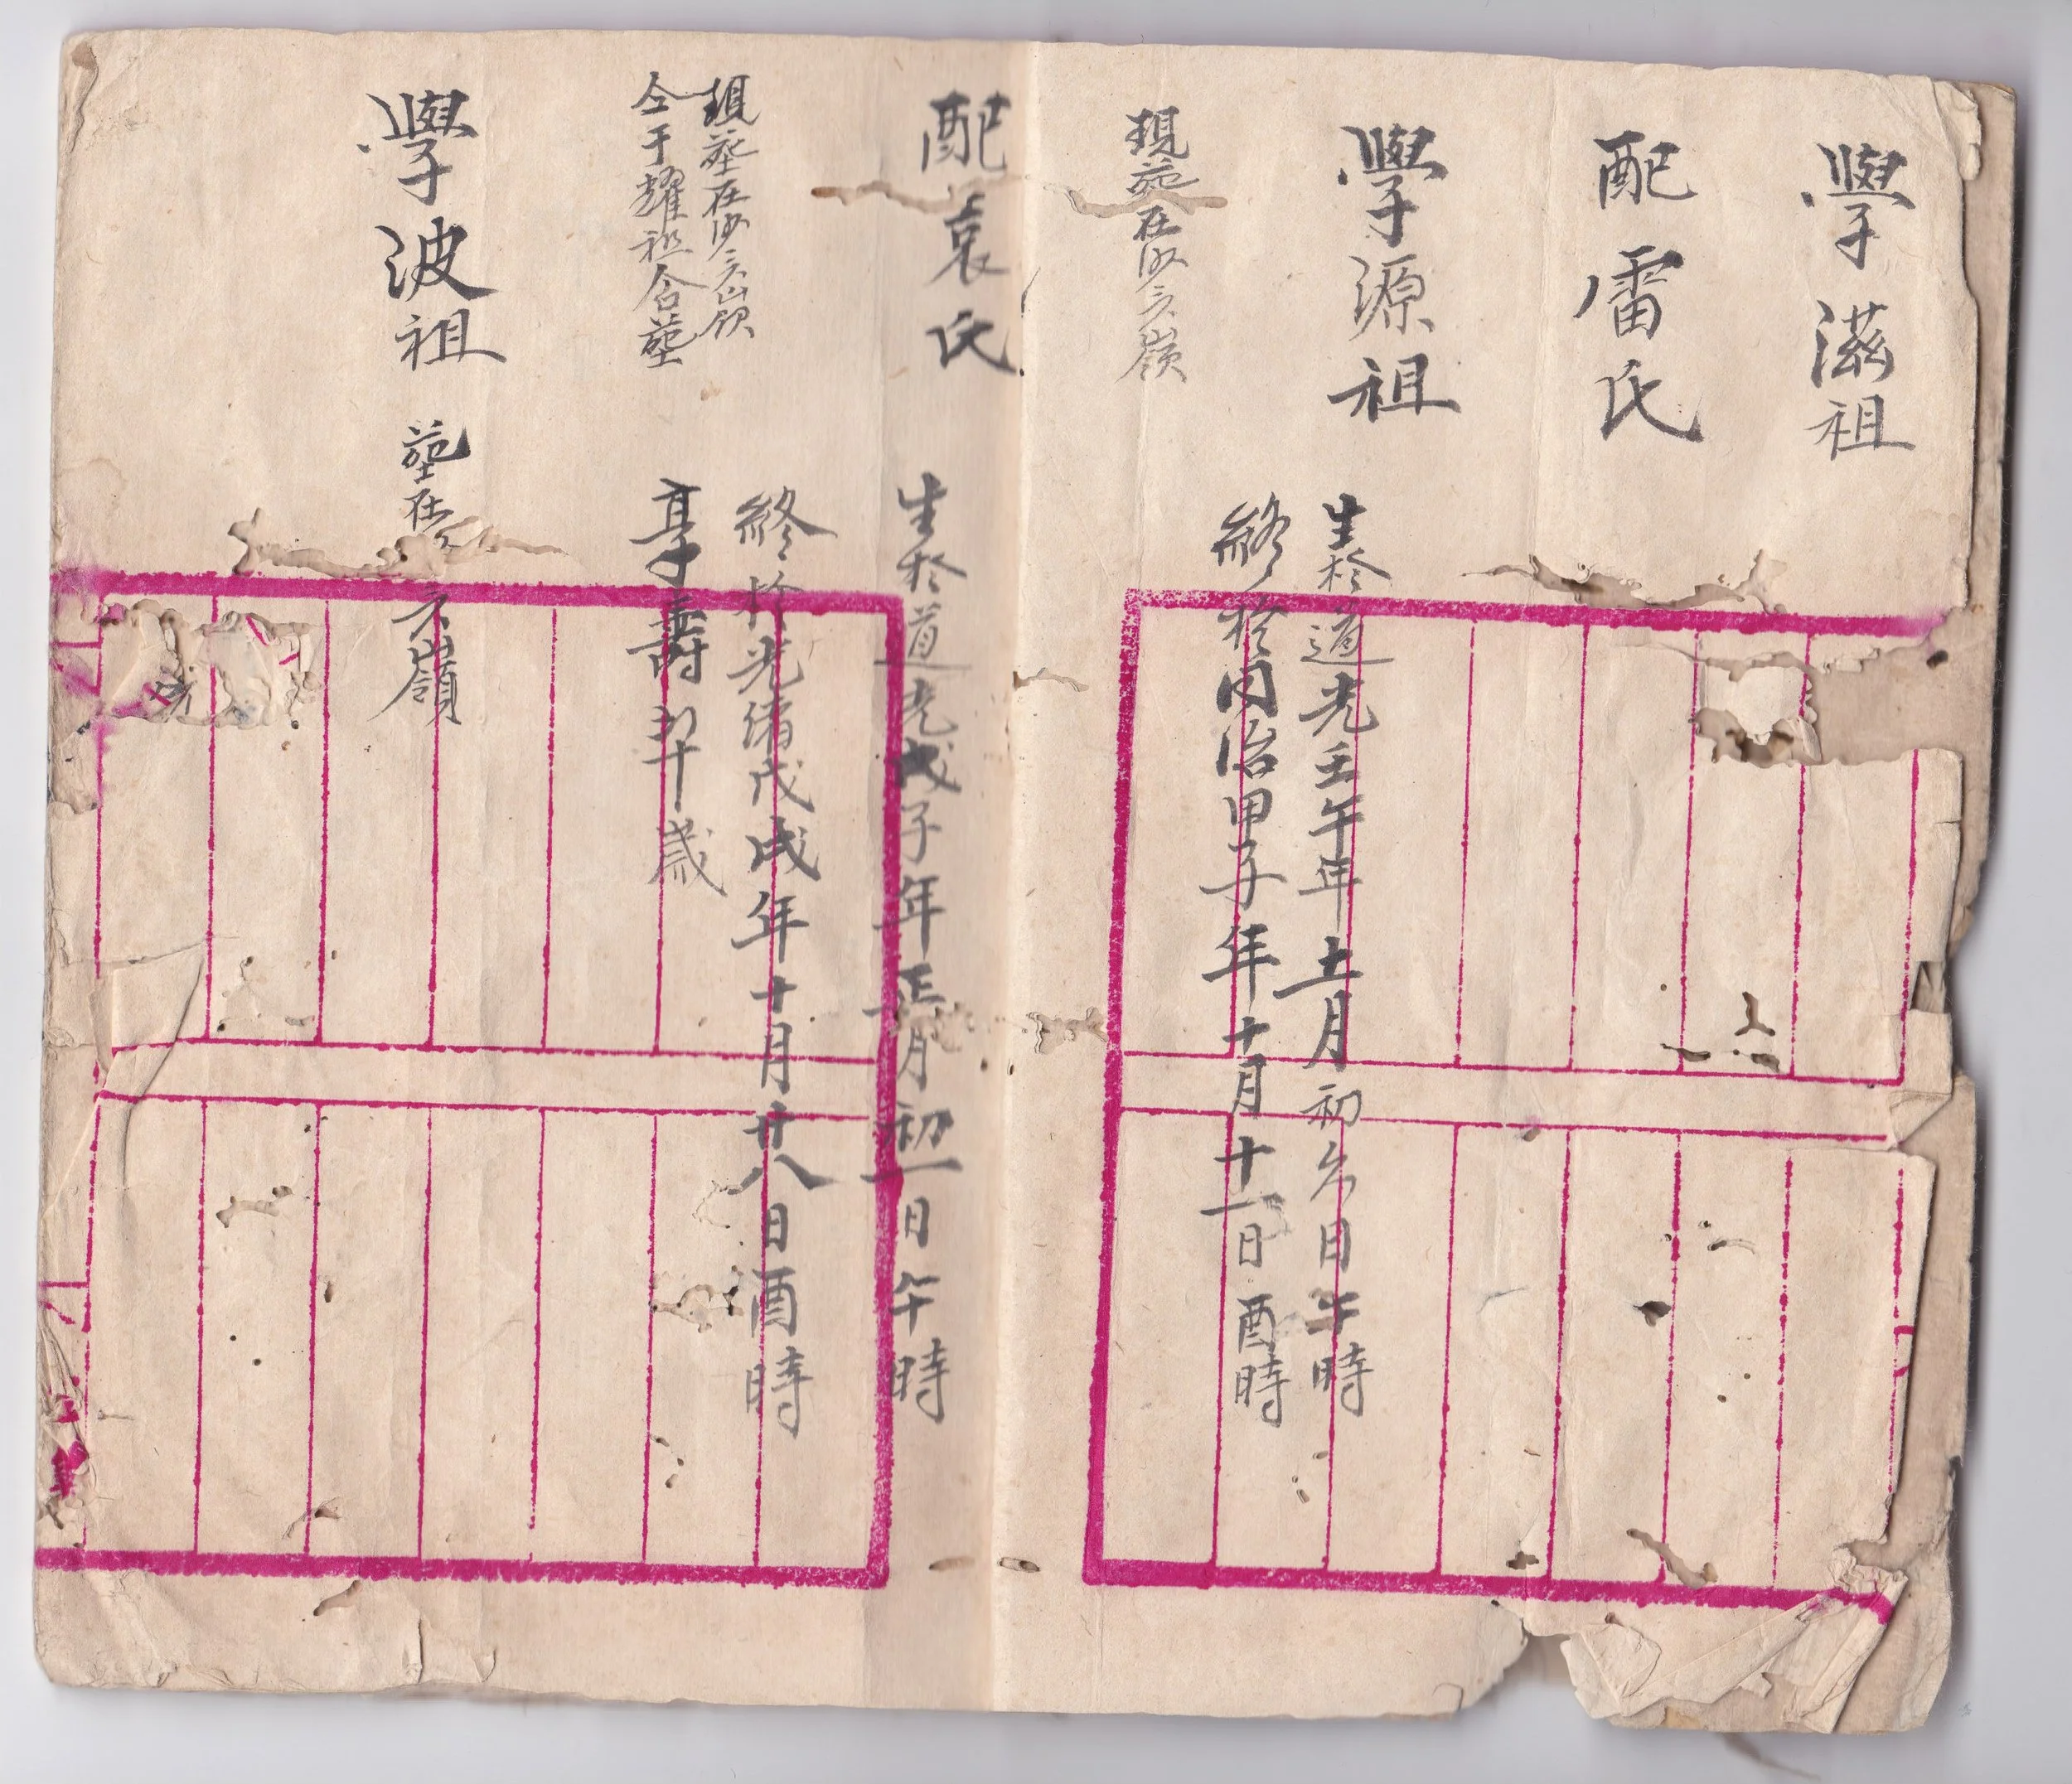 學滋祖
配雷氏
學源祖
生於道光壬午年十一月初六日午時
終於同治甲子年十月十一日酉時
現塋在沙六嶺
配袁氏
生於道光戊子年正月初一日午時
終於光緒戊戌年十月廿八日酉時
享壽 歲
現塋在沙六山嶺
仝于耀祖合塋
學波祖 塋在 六山嶺